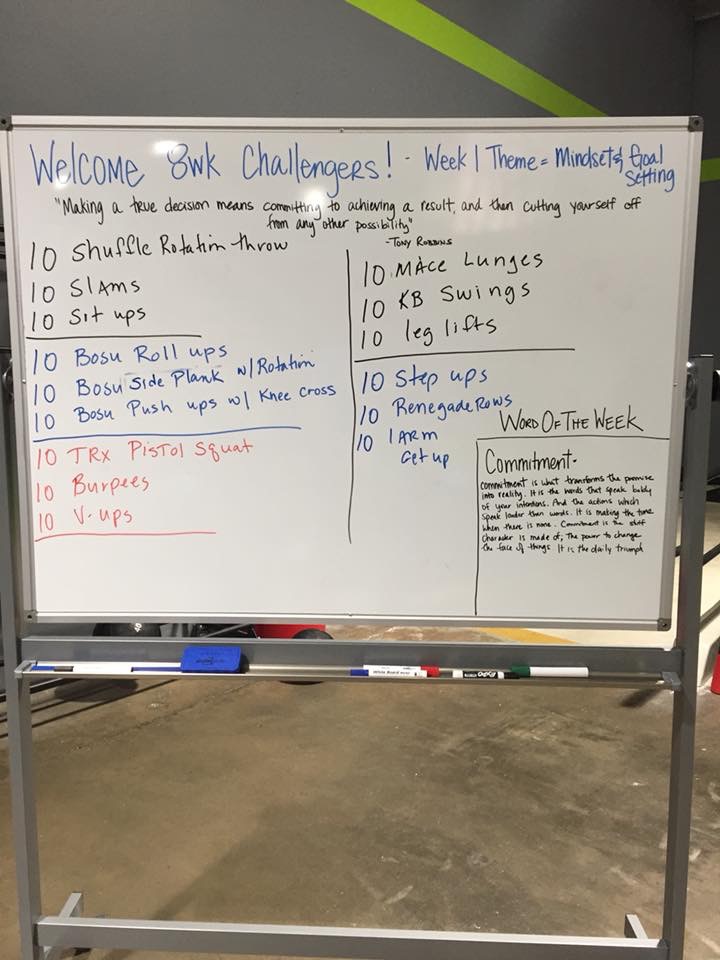 Welcome 8wk Challengers! - Week 1 Theme = Mindset & Goal
Setting
"Making a true decision means committing to achieving a result, and then cutting yourself off
from any other possibility"
-Tony Robbins
10 Shuffle Rotation throw
10 Slams
10 Sit ups
10 Bosu Roll ups
10 Bosu Side Plank w/ Rotation
10 Bosu Push ups w/ Knee Cross
10 TRX Pistol Squat
10 Burpees
10 V-ups
10 Mace Lunges
10 KB Swings
10 leg lifts
10 Step ups
10 Renegade Rows
10 1 Arm
Get up
Word Of The Week
Commitment-
Commitment is what transforms the promise
into reality. It is the words that speak boldly
of your intentions. And the actions which
speak louder than words. It is making the time
when there is none. Commitment is the stuff
character is made of; The power to change
the face of things It is the daily triumph